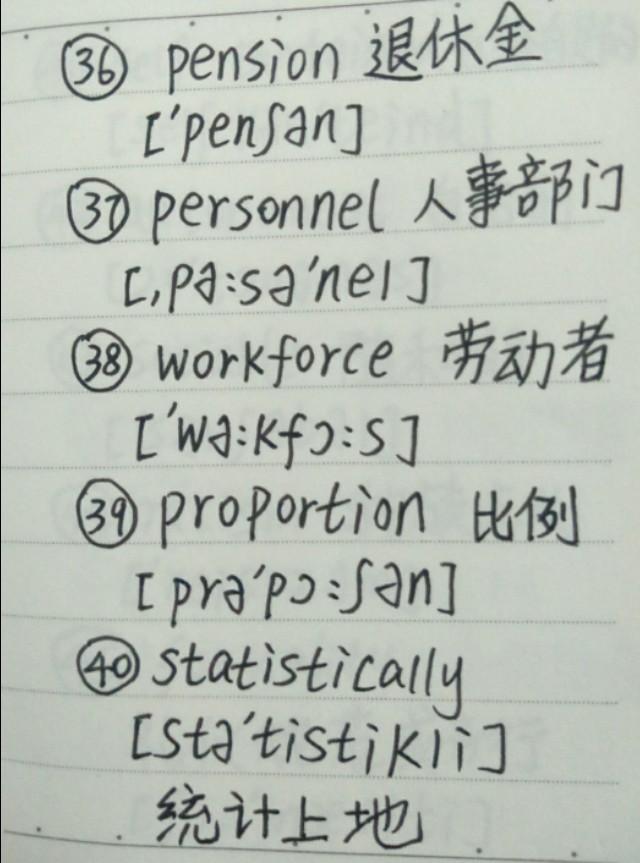 ㊱ pension 退休金
['penʃən]
㊲ personnel 人事部门
[,pə:sə'nel]
㊳ workforce 劳动者
['wə:kfɔ:s]
㊴ proportion 比例
[prə'pɔ:ʃən]
㊵ statistically
[stə'tistikli]
统计上地